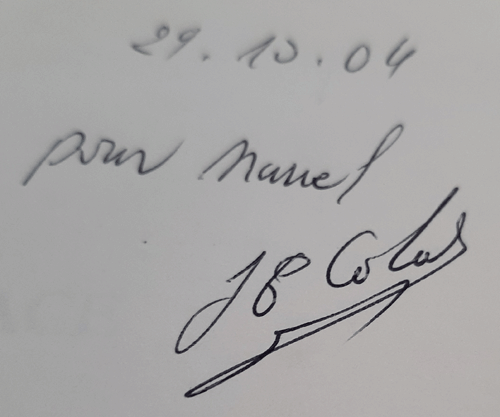 29.10.04
pour Marcel
JP Colas